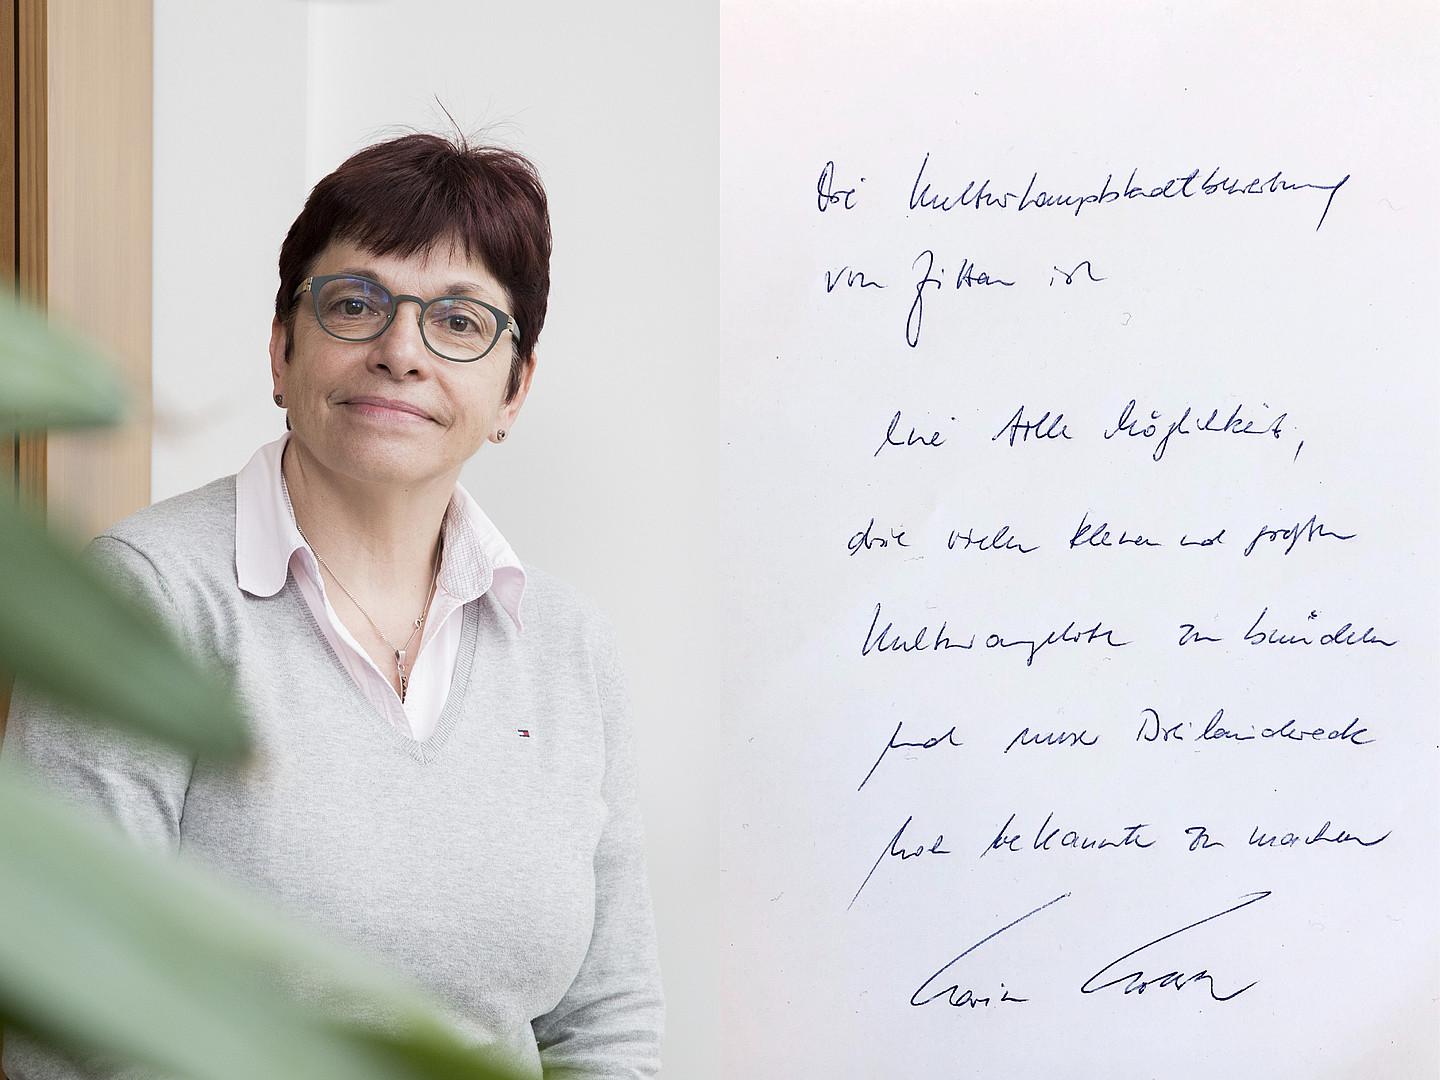 Die Kulturhauptstadtbewerbung
von Zittau ist
eine tolle Möglichkeit,
die vielen kleinen und großen
Kulturangebote zu bündeln
und unser Dreiländereck
bekannter zu machen
Karin